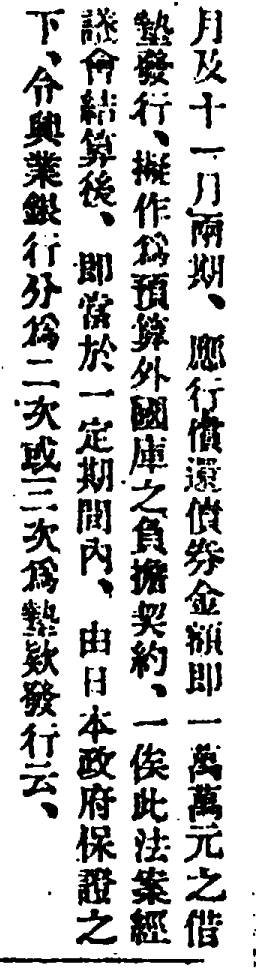 月及十一月兩期、應行償還債券金額即一萬萬元之借
墊發行、擬作爲預算外國庫之負擔契約、一俟此法案經
議會結算後、即當於一定期間內、由日本政府保證之
下、令興業銀行分爲二次或三次爲墊欵發行云、